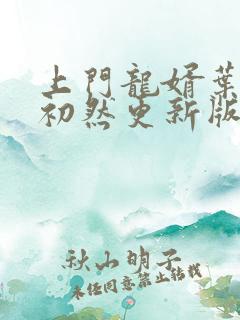 上門龍婿葉
初然更新版
秋山明子
未經同意禁止轉載